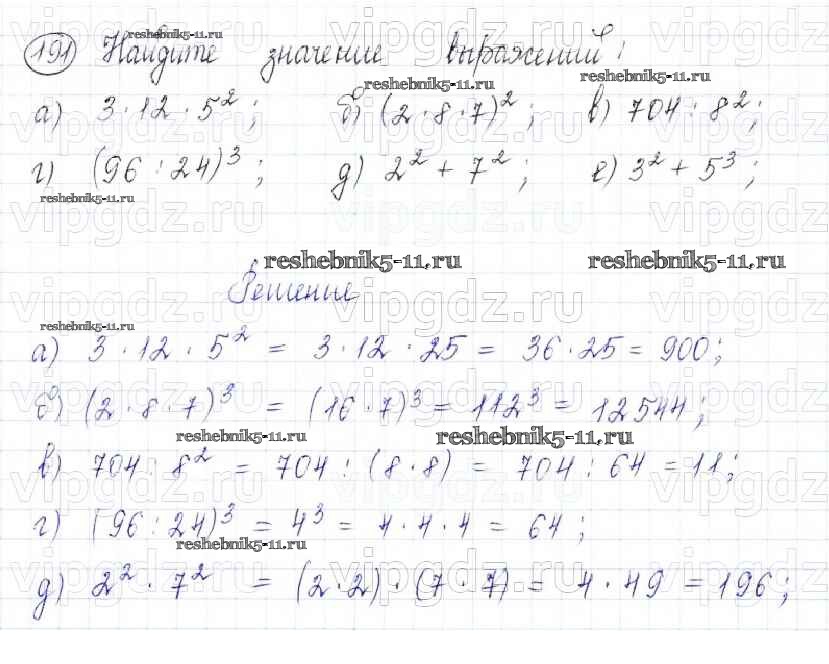 191 Найдите значение выражений:
а) 3 · 12 · 5²; б) (2 · 8 · 7)²; в) 704 : 8²;
г) (96 : 24)³; д) 2² + 7²; е) 3² + 5³;
Решение
а) 3 · 12 · 5² = 3 · 12 · 25 = 36 · 25 = 900;
б) (2 · 8 · 7)³ = (16 · 7)³ = 112³ = 12544;
в) 704 : 8² = 704 : (8 · 8) = 704 : 64 = 11;
г) (96 : 24)³ = 4³ = 4 · 4 · 4 = 64;
д) 2² · 7² = (2 · 2) · (7 · 7) = 4 · 49 = 196;
reshebnik5-11.ru
vipgdz.ru